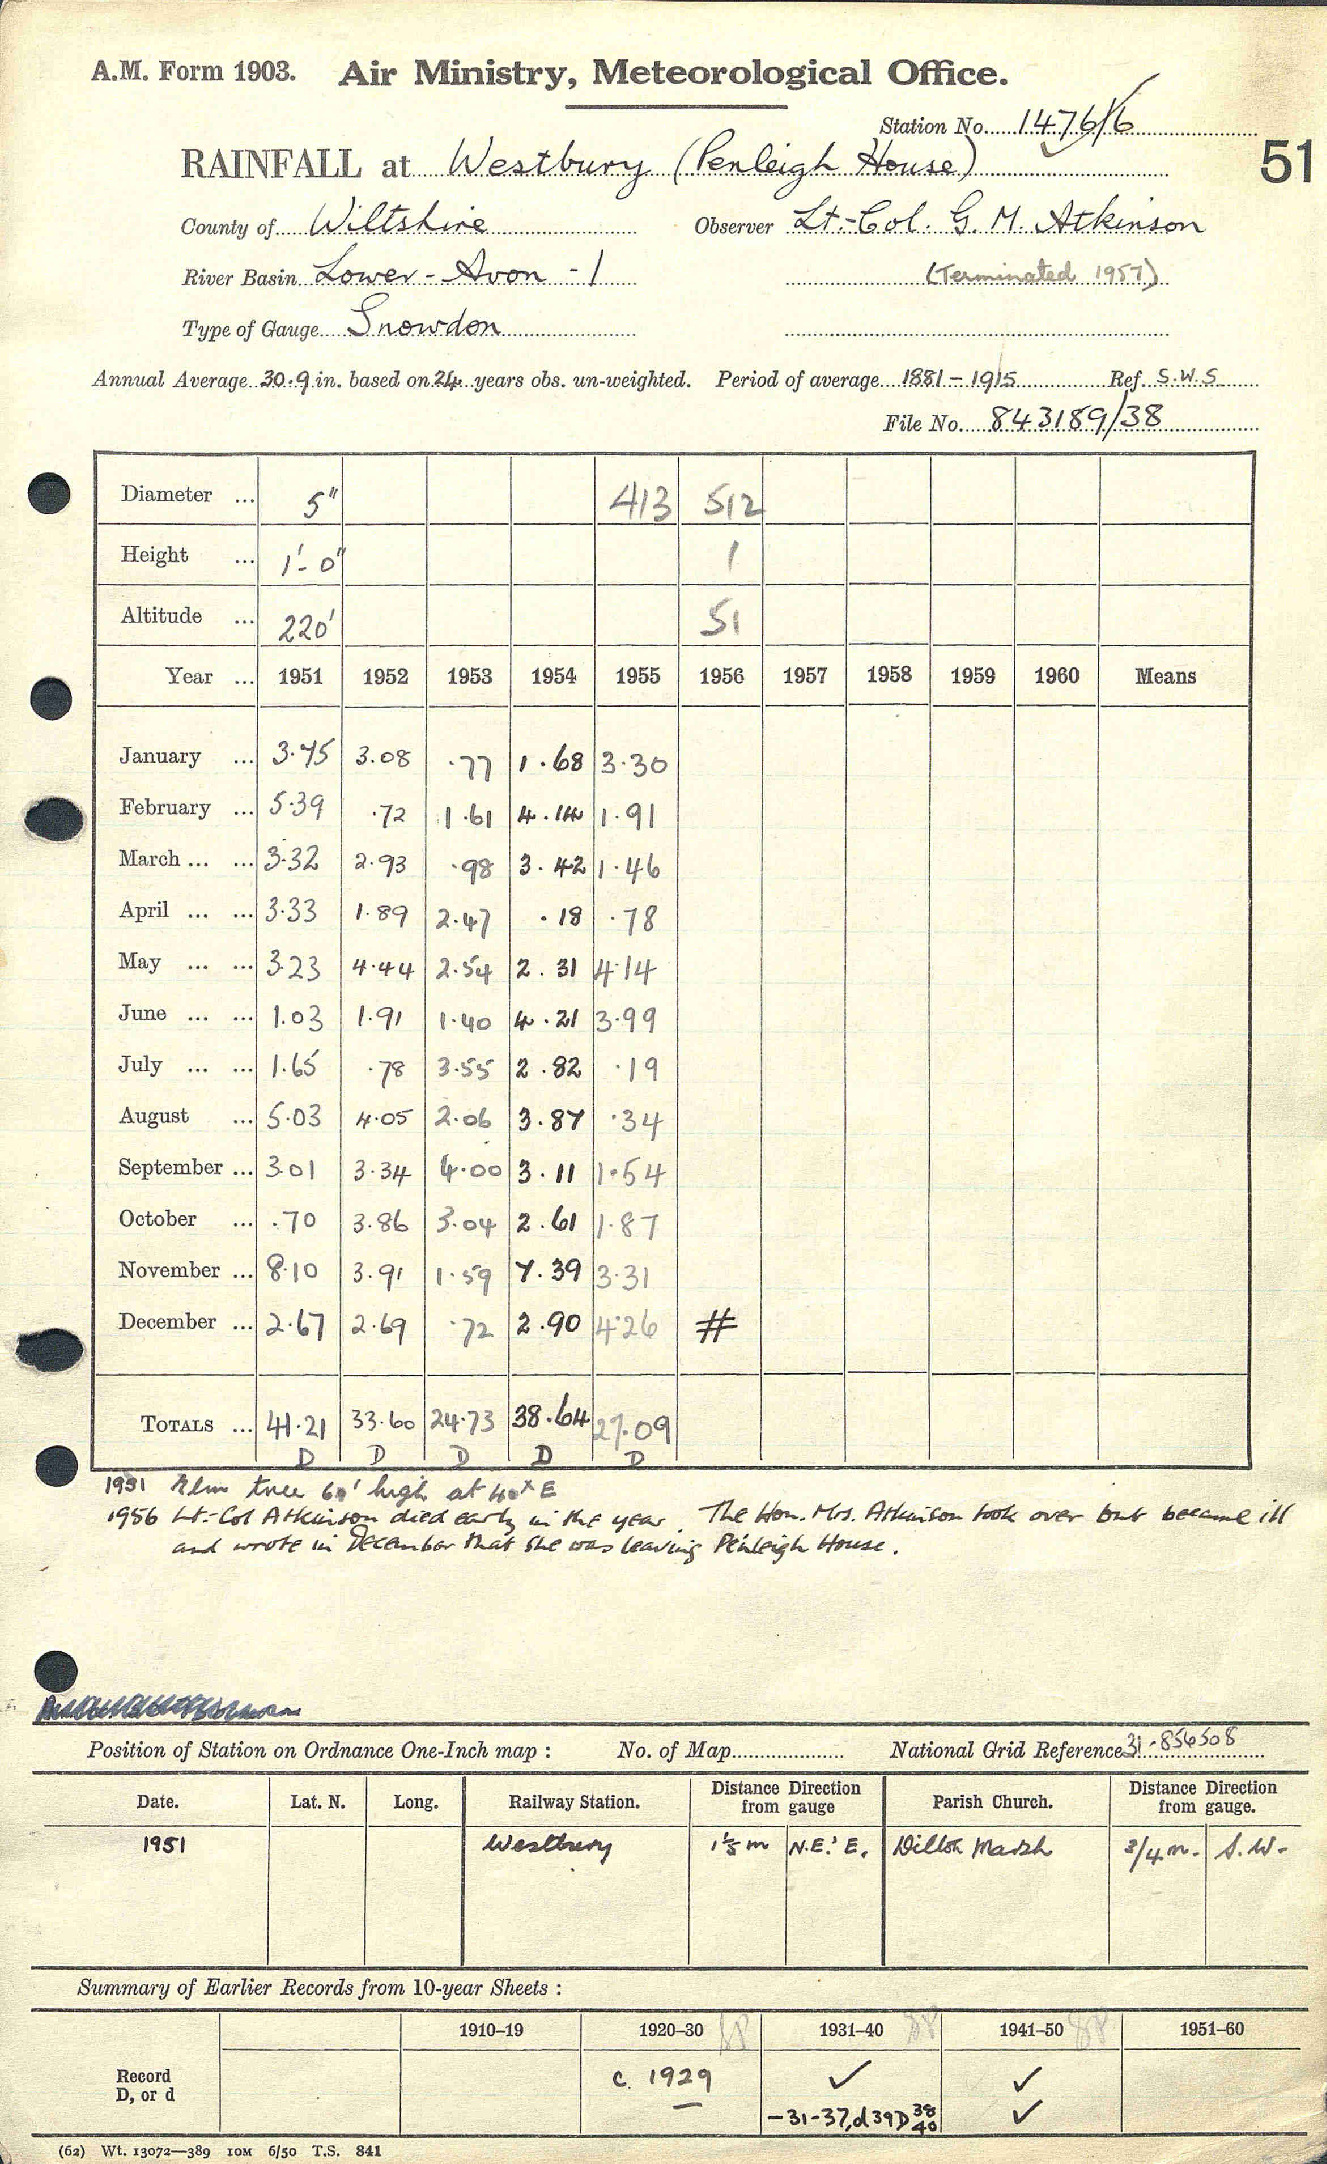 A.M. Form 1903. Air Ministry, Meteorological Office.
Station No. 1476/6
51
RAINFALL at Westbury (Penleigh House)
County of Wiltshire Observer Lt.-Col. G. M. Atkinson
River Basin Lower-Avon -1 (Terminated 1957)
Type of Gauge Snowdon
Annual Average 30.9 in. based on 24 years obs. un-weighted. Period of average 1881-1915 Ref. S.W.S
File No. 843189/38
Diameter ... 5" 413 512
Height ... 1'-0" 1
Altitude ... 220' 51
Year ... 1951 1952 1953 1954 1955 1956 1957 1958 1959 1960 Means
January ... 3.75 3.08 .77 1.68 3.30
February ... 5.39 .72 1.61 4.14 1.91
March ... ... 3.32 2.93 .98 3.42 1.46
April ... ... 3.33 1.89 2.47 .18 .78
May ... ... 3.23 4.44 2.54 2.31 4.14
June ... ... 1.03 1.91 1.40 4.21 3.99
July ... ... 1.65 .78 3.55 2.82 .19
August ... 5.03 4.05 2.06 3.87 .34
September ... 3.01 3.34 4.00 3.11 1.54
October ... .70 3.86 3.04 2.61 1.87
November ... 8.10 3.91 1.59 7.39 3.31
December ... 2.67 2.69 .72 2.90 4.26 #
TOTALS ... 41.21 33.60 24.73 38.64 27.09
D D D D D
1951 Elm tree 60' high at 40x E
1956 Lt.-Col Atkinson died early in the year. The Hon. Mrs. Atkinson took over but became ill
and wrote in December that she was leaving Penleigh House.
Position of Station on Ordnance One-Inch map : No. of Map National Grid Reference 31-856508
Date. Lat. N. Long. Railway Station. Distance Direction from gauge Parish Church. Distance Direction from gauge.
1951 Westbury 1⅕ m N.E.'E. Dilton Marsh 3/4 m. S.W.
Summary of Earlier Records from 10-year Sheets :
1910–19 1920–30 1931–40 1941–50 1951–60
Record c. 1929 ✓ ✓
D, or d -31-37,d39D 38 40 ✓
(62) Wt. 13072—389 10M 6/50 T.S. 841